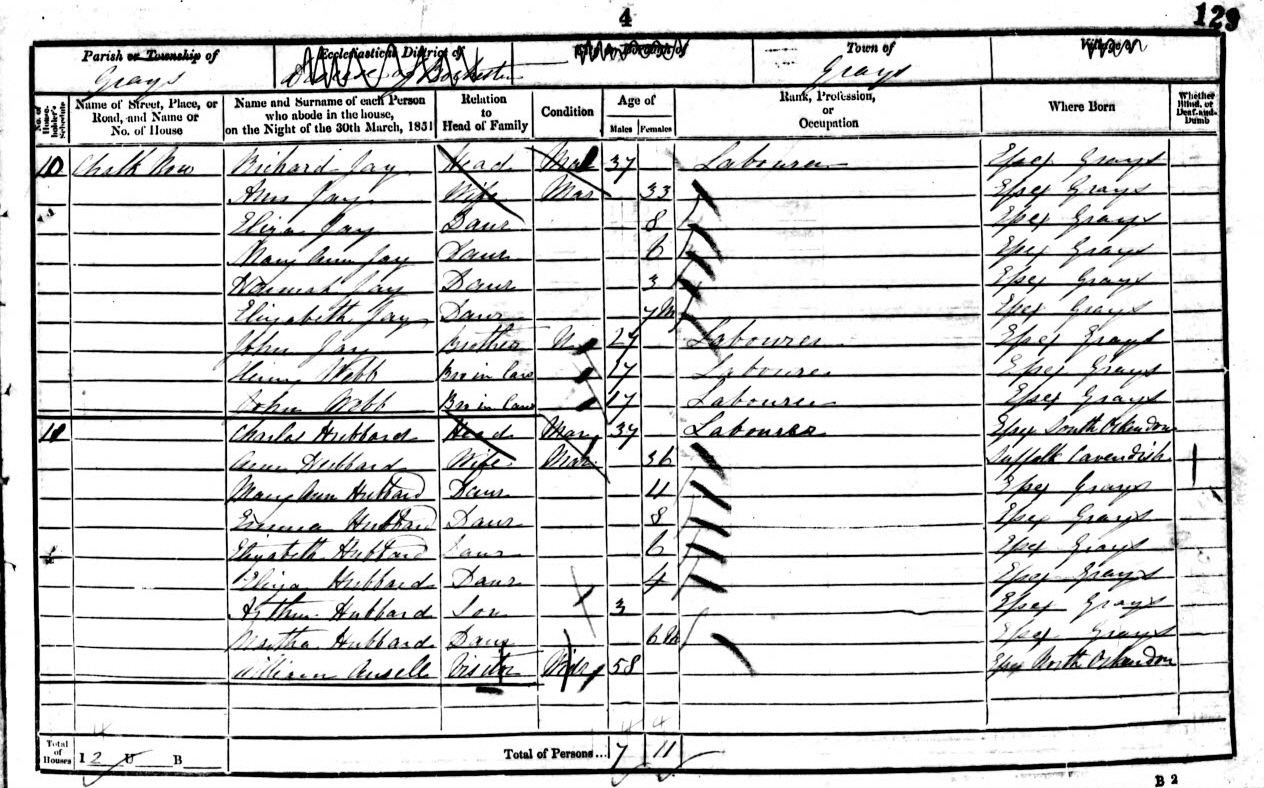 4
129
Parish or Township of Ecclesiastical District of Town of Village of
Grays Grays
No. of House-holder's Schedule Name of Street, Place, or Road, and Name or No. of House Name and Surname of each Person who abode in the house, on the Night of the 30th March, 1851 Relation to Head of Family Condition Age of Males Females Rank, Profession, or Occupation Where Born Whether Blind, or Deaf-and-Dumb
10 Chalk Row Richard Jay Head Mar 37 Labourer Essex Grays
Ann Jay Wife Mar 33 Essex Grays
Eliza Jay Daur 8 Essex Grays
Mary Ann Jay Daur 6 Essex Grays
Hannah Jay Daur 3 Essex Grays
Elizabeth Jay Daur 7 M Essex Grays
John Jay Brother U 27 Labourer Essex Grays
Henry Webb Bro in Law Labourer Essex Grays
John Webb Bro in Law 17 Labourer Essex Grays
11 Charles Hubbard Head Mar 37 Labourer Essex South Ockendon
Ann Hubbard Wife Mar 36 Suffolk Cavendish
Mary Ann Hubbard Daur Essex Grays
Emma Hubbard Daur 8 Essex Grays
Elizabeth Hubbard Daur 6 Essex Grays
Eliza Hubbard Daur 4 Essex Grays
Arthur Hubbard Son 3 Essex Grays
Martha Hubbard Daur Essex Grays
William Ansell Visitor Widr 58 Essex North Ockendon
Total of Houses I 2 U B Total of Persons... 7 11
B 2